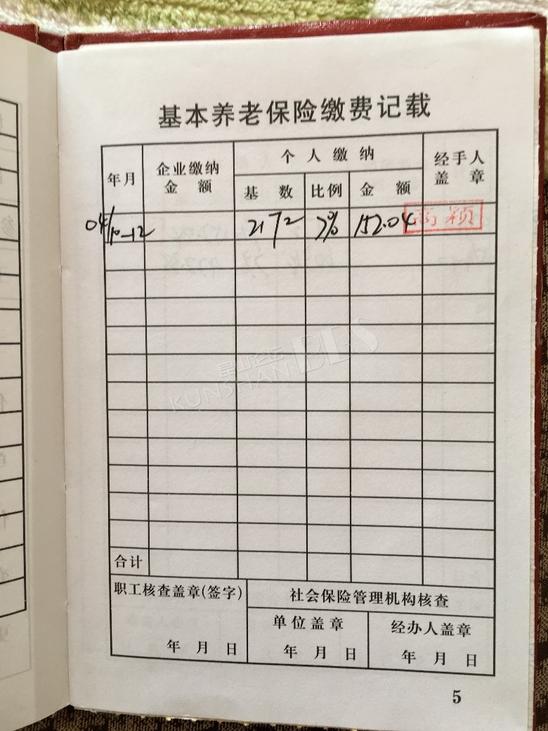 基本养老保险缴费记载
年月 企业缴纳金额 个人缴纳 经手人盖章
基数 比例 金额
04/10-12 2172 7% 152.04 高颖
合计
职工核查盖章(签字) 社会保险管理机构核查
单位盖章 经办人盖章
年 月 日 年 月 日 年 月 日
5